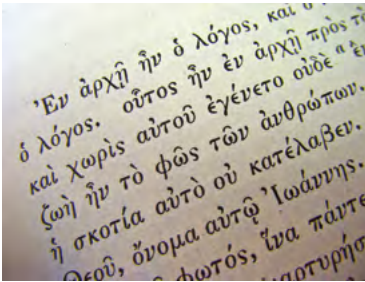 Ἐν ἀρχῇ ἦν ὁ λόγος, καὶ ὁ
ὁ λόγος. οὗτος ἦν ἐν ἀρχῇ πρὸς τὸ
καὶ χωρὶς αὐτοῦ ἐγένετο οὐδὲ ἓν
ζωὴ ἦν τὸ φῶς τῶν ἀνθρώπων.
ἡ σκοτία αὐτὸ οὐ κατέλαβεν.
Θεοῦ, ὄνομα αὐτῷ Ἰωάννης.
φωτός, ἵνα πάντε
αρτυρήσ